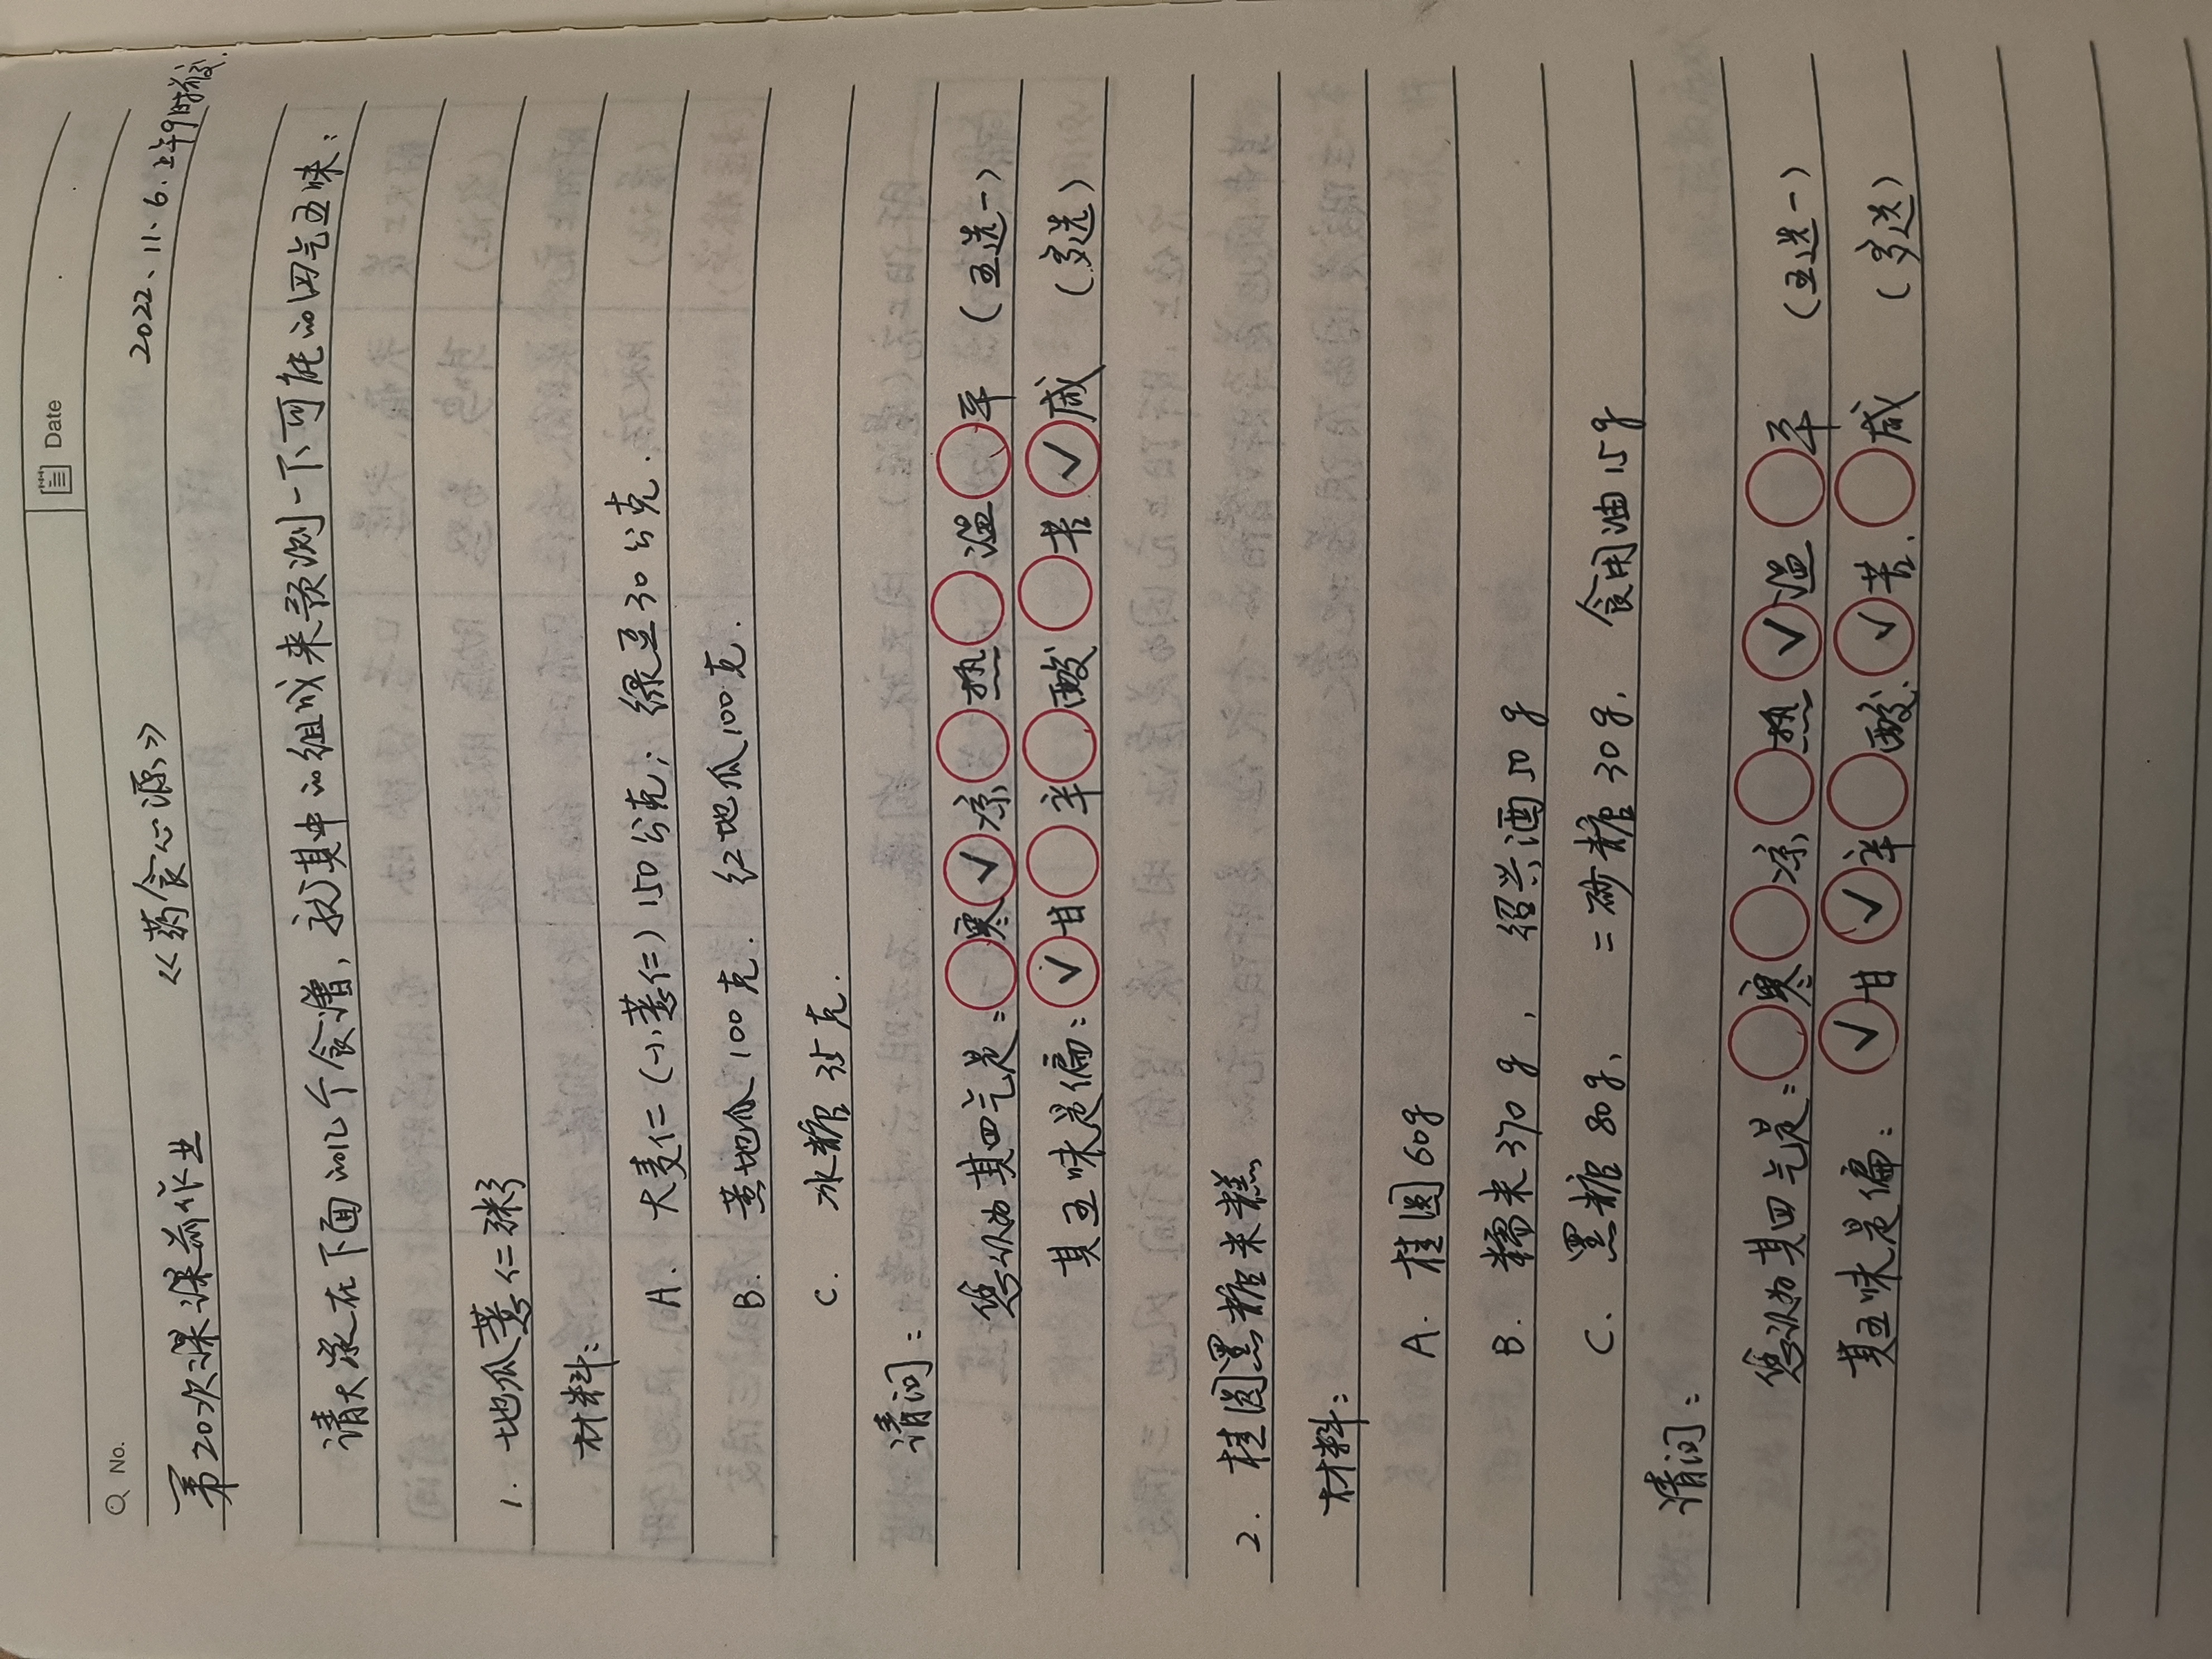 No. Date
第20次课课前作业 《药食心源》 2022、11、6.上午9时
请大家在下面的几个食谱，找其中的组成来预测一下可能的四气五味：
1. 地瓜薏仁粥
材料：
A. 大麦仁（小薏仁）150公克；绿豆30公克.
B. 黄地瓜100克. 红地瓜100克.
C. 冰糖35克.
请问：
您认为其四气是：○寒 ✓凉 ○热 ○温 ○平 （五选一）
其五味是偏：✓甘 ○辛 ○酸 ○苦 ✓咸 （多选）
2. 桂圆黑糖米糕
材料：
A. 桂圆60g
B. 糯米370g，绍兴酒50g
C. 黑糖80g、二砂糖30g、食用油15g
请问：
您认为其四气是：○寒 ○凉 ○热 ✓温 ○平 （五选一）
其五味是偏：✓甘 ✓辛 ○酸、✓苦、○咸 （多选）